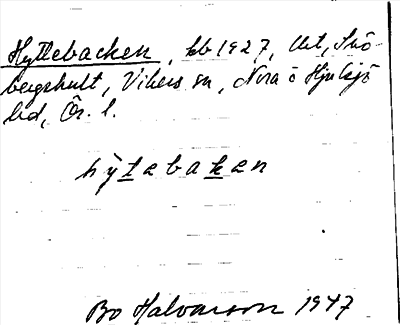 Hyttebacken, kb 1927, Ut, Snö-
bergshult, Vikers sn, Nora o Hjulsjö
bd, Ör. l.
hỳtebaken
Bo Halvarson 1947